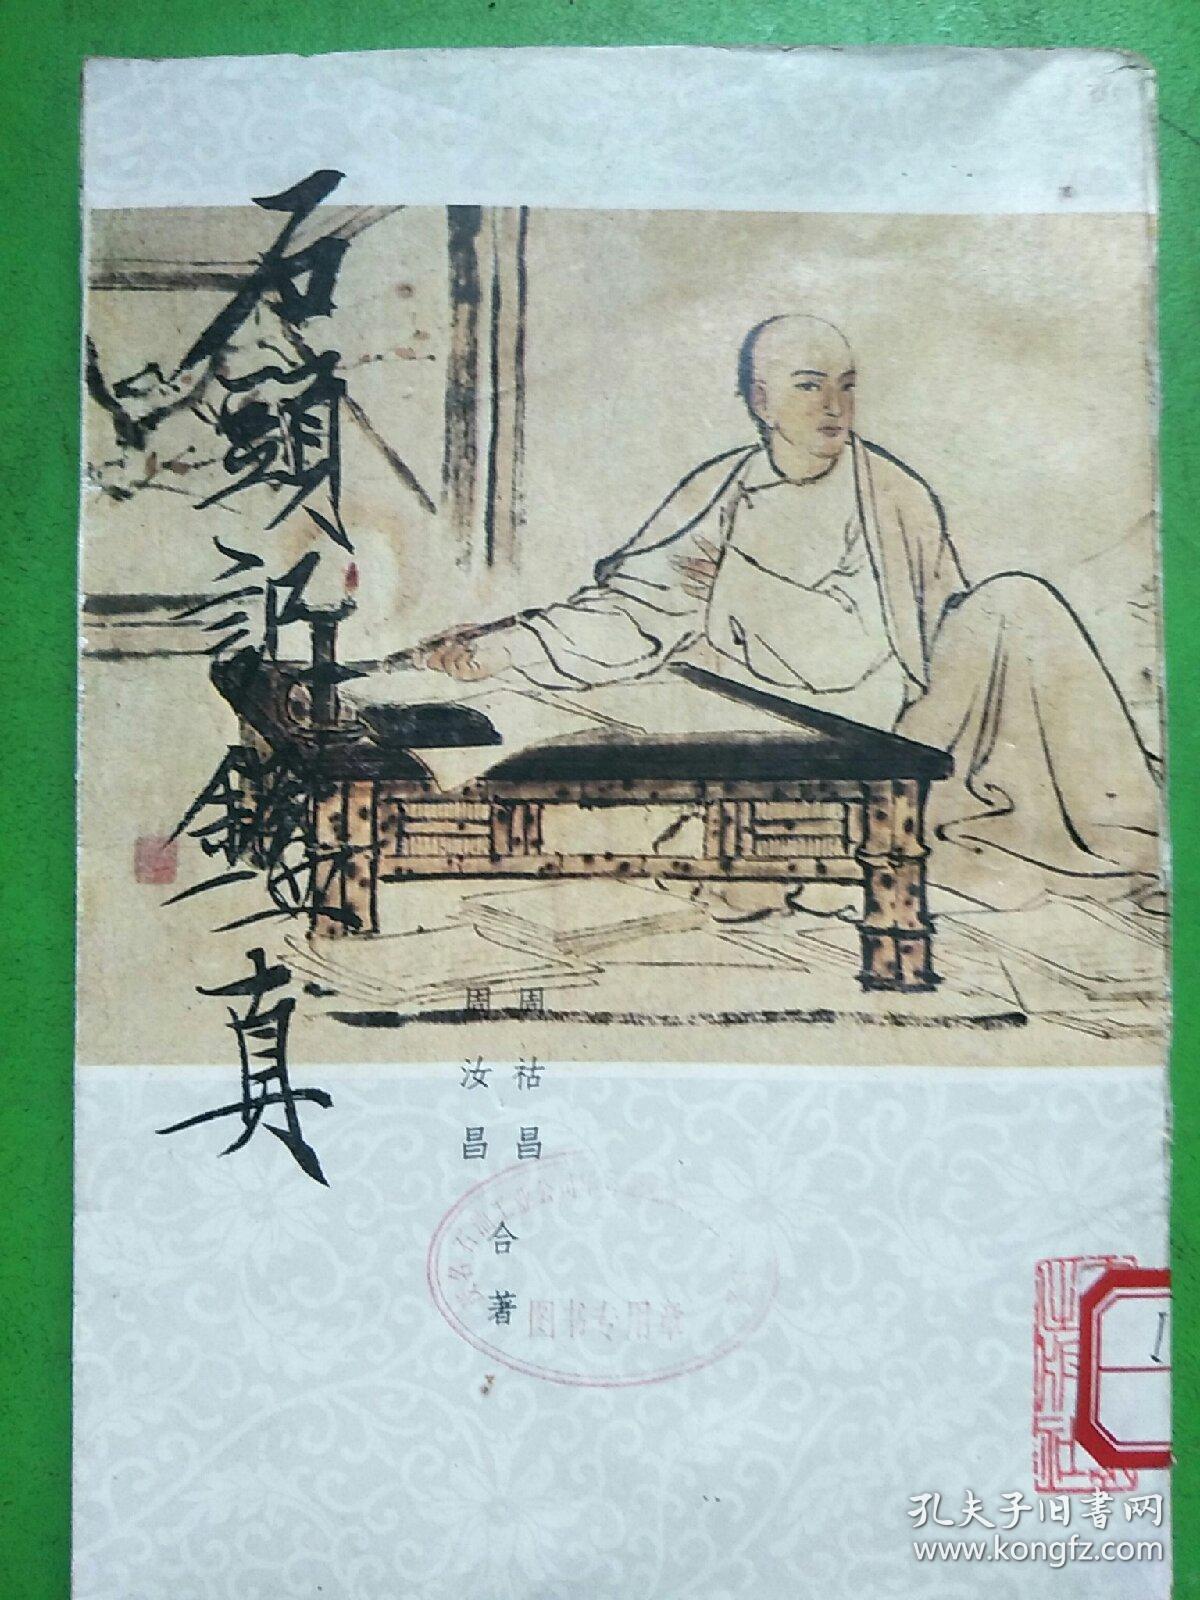 石頭記鑒真
周祜昌
周汝昌
合著
图书专用章
孔夫子旧书网
www.kongfz.com